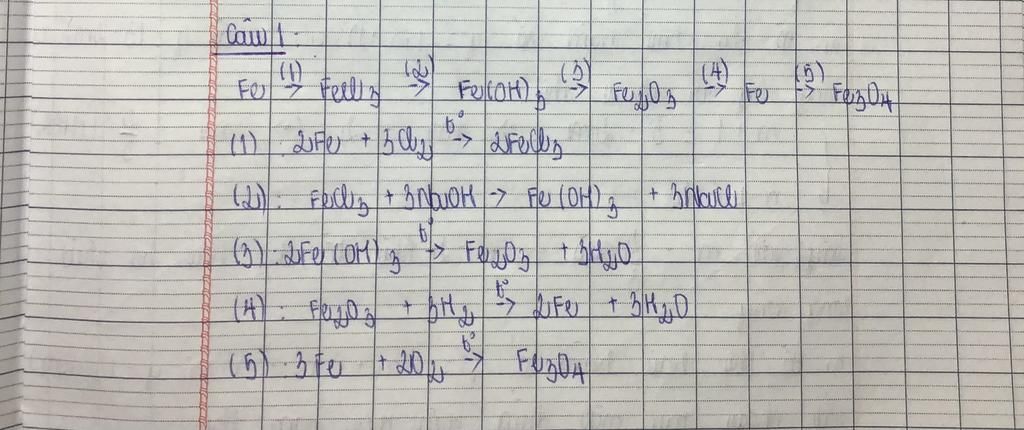 Câu 1:
Fe (1)→ FeCl3 (2)→ Fe(OH)3 (3)→ Fe2O3 (4)→ Fe (5)→ Fe3O4
(1): 2Fe + 3Cl2 t°→ 2FeCl3
(2): FeCl3 + 3NaOH → Fe(OH)3 + 3NaCl
(3): 2Fe(OH)3 t°→ Fe2O3 + 3H2O
(4): Fe2O3 + 3H2 t°→ 2Fe + 3H2O
(5): 3Fe + 2O2 t°→ Fe3O4